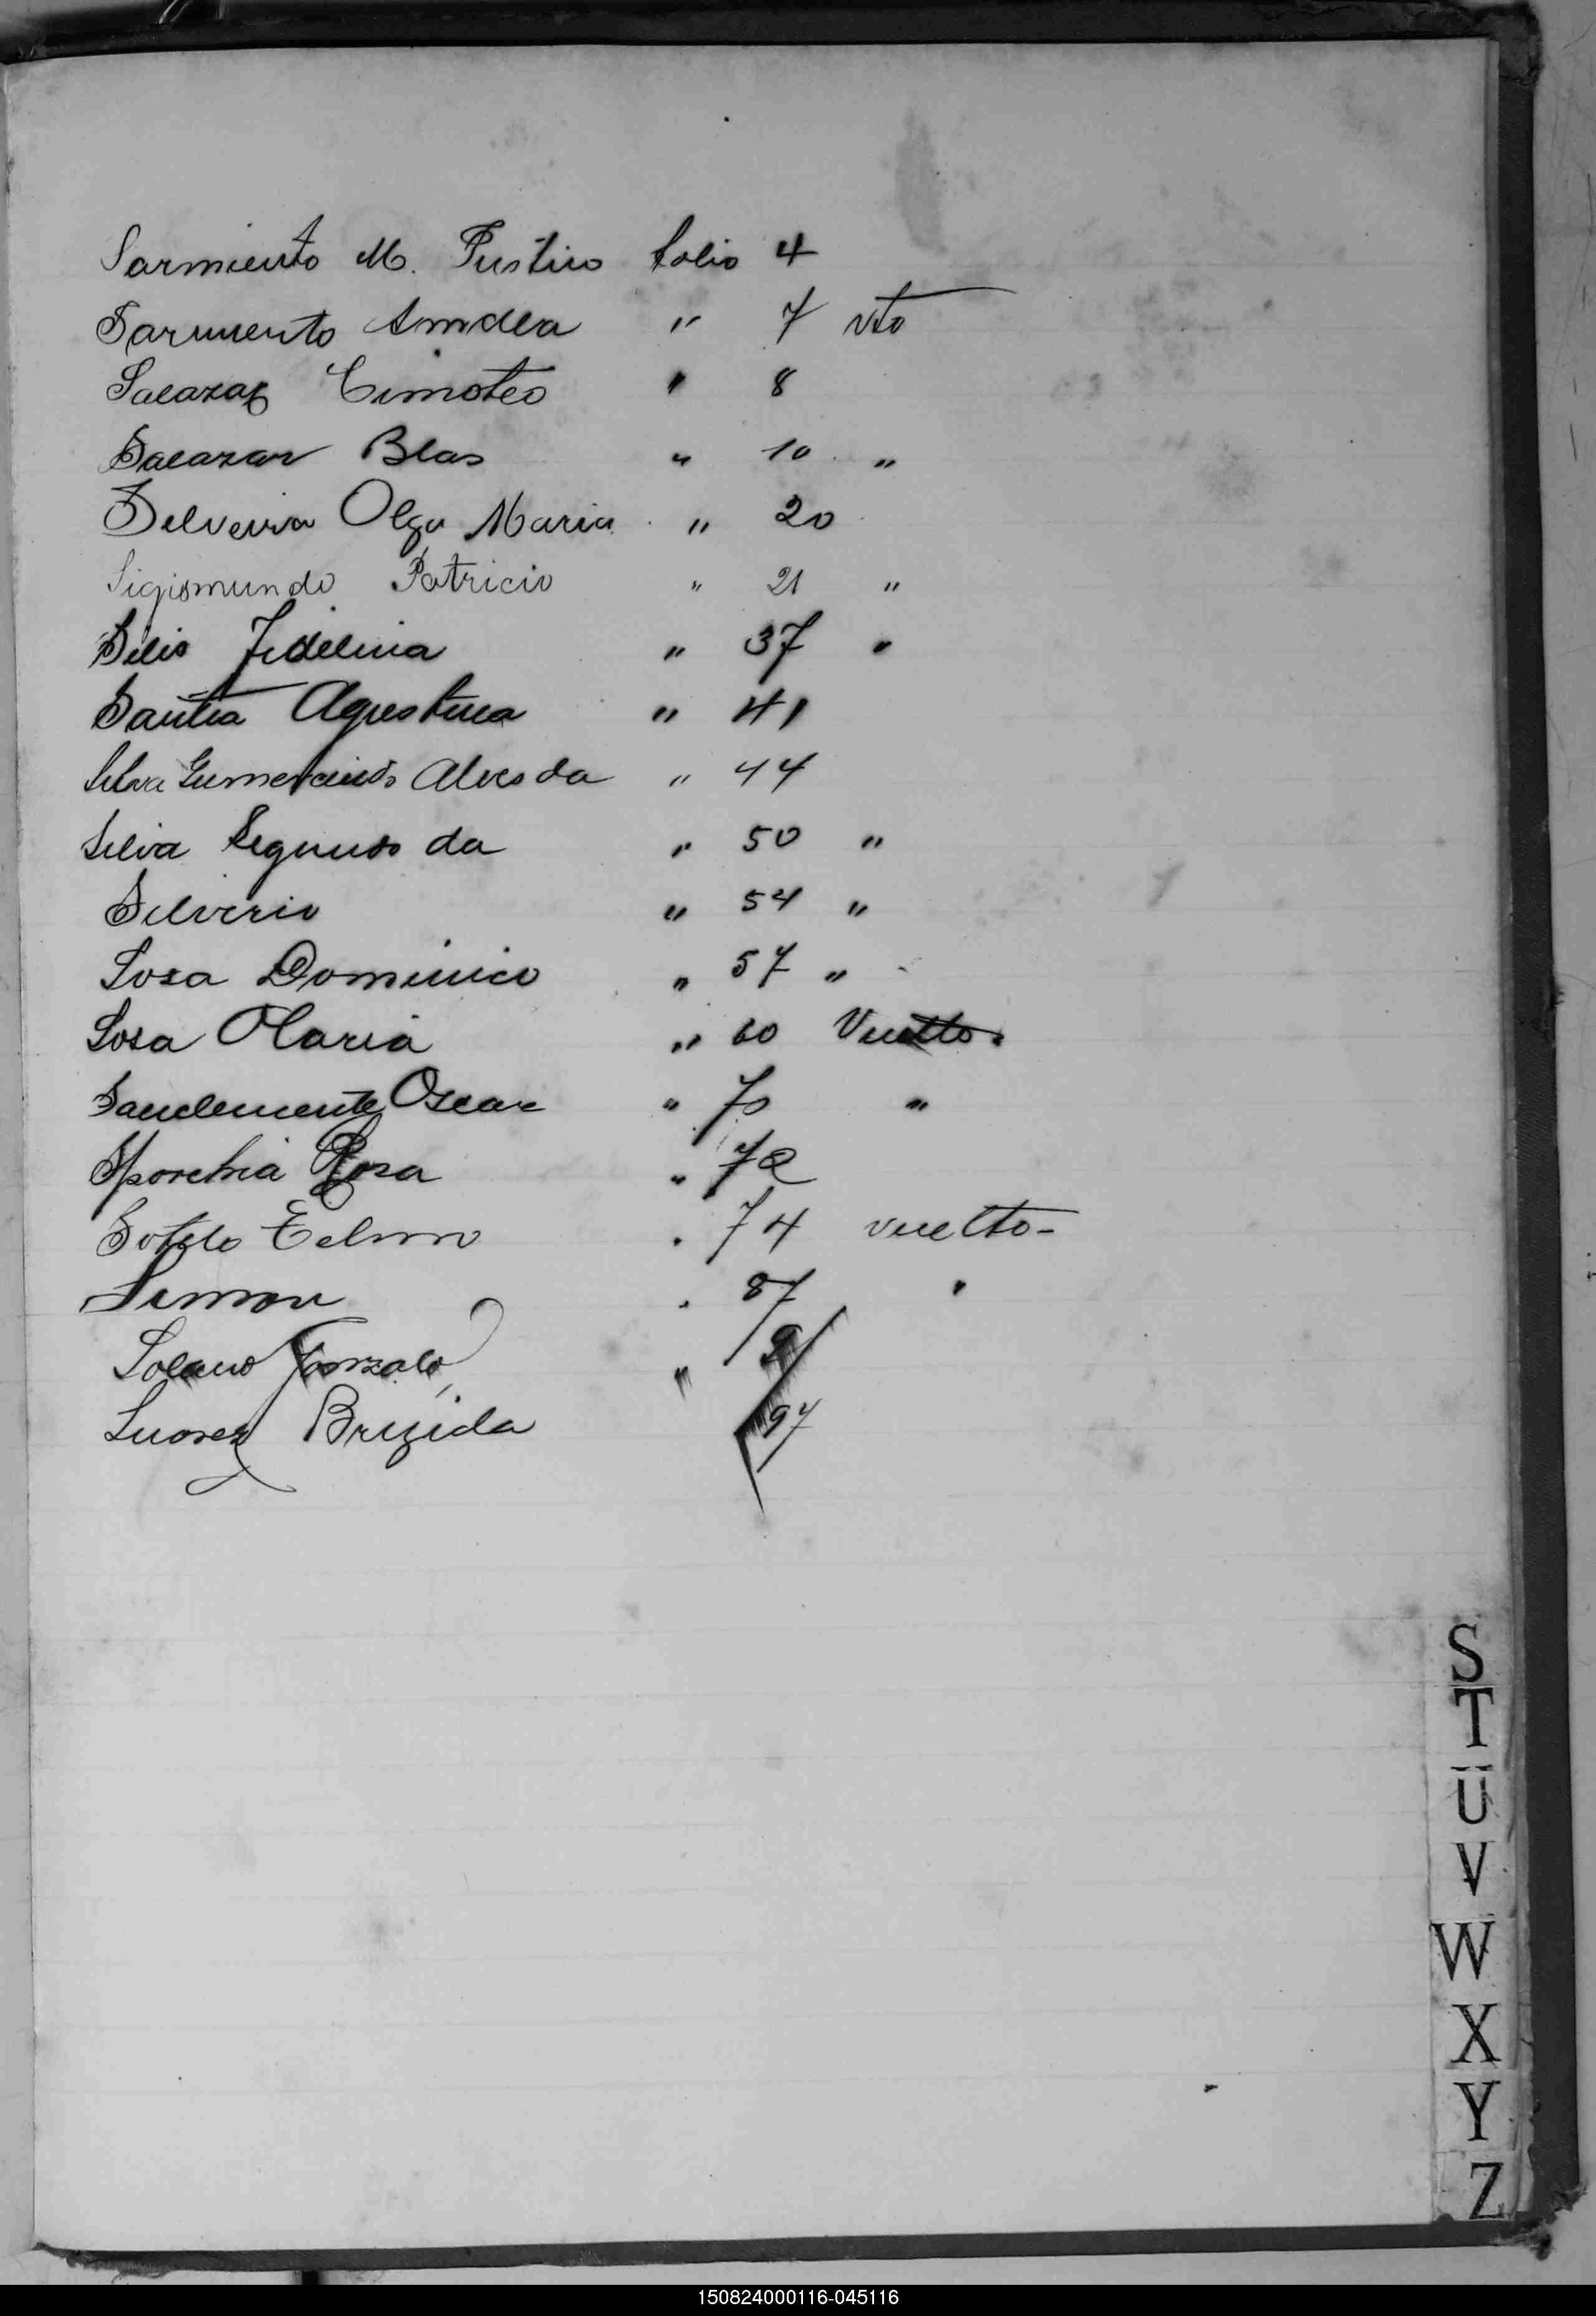 Sarmiento M. Justino folio 4
Sarmiento Amdea " 7 vto
Salazar Timoteo " 8
Salazar Blas " 10 "
Silveira Olga Maria " 20
Sigismundo Patricio " 21 "
Silis Fidelina " 37 "
Santia Agustina " 41
Silva Gumercindo Alves da " 44
Silva Segundo da " 50 "
Silverio " 54 "
Sosa Dominico " 57 "
Sosa Maria " 60 Vuelto.
Sanclemente Oscar " 70 "
Sporchia Rosa " 72
Sotelo Telmo " 74 vuelto-
Simon " 87 "
Solano Gonzalo "
Suarez Brigida 97
S
T
U
V
W
X
Y
Z
150824000116-045116